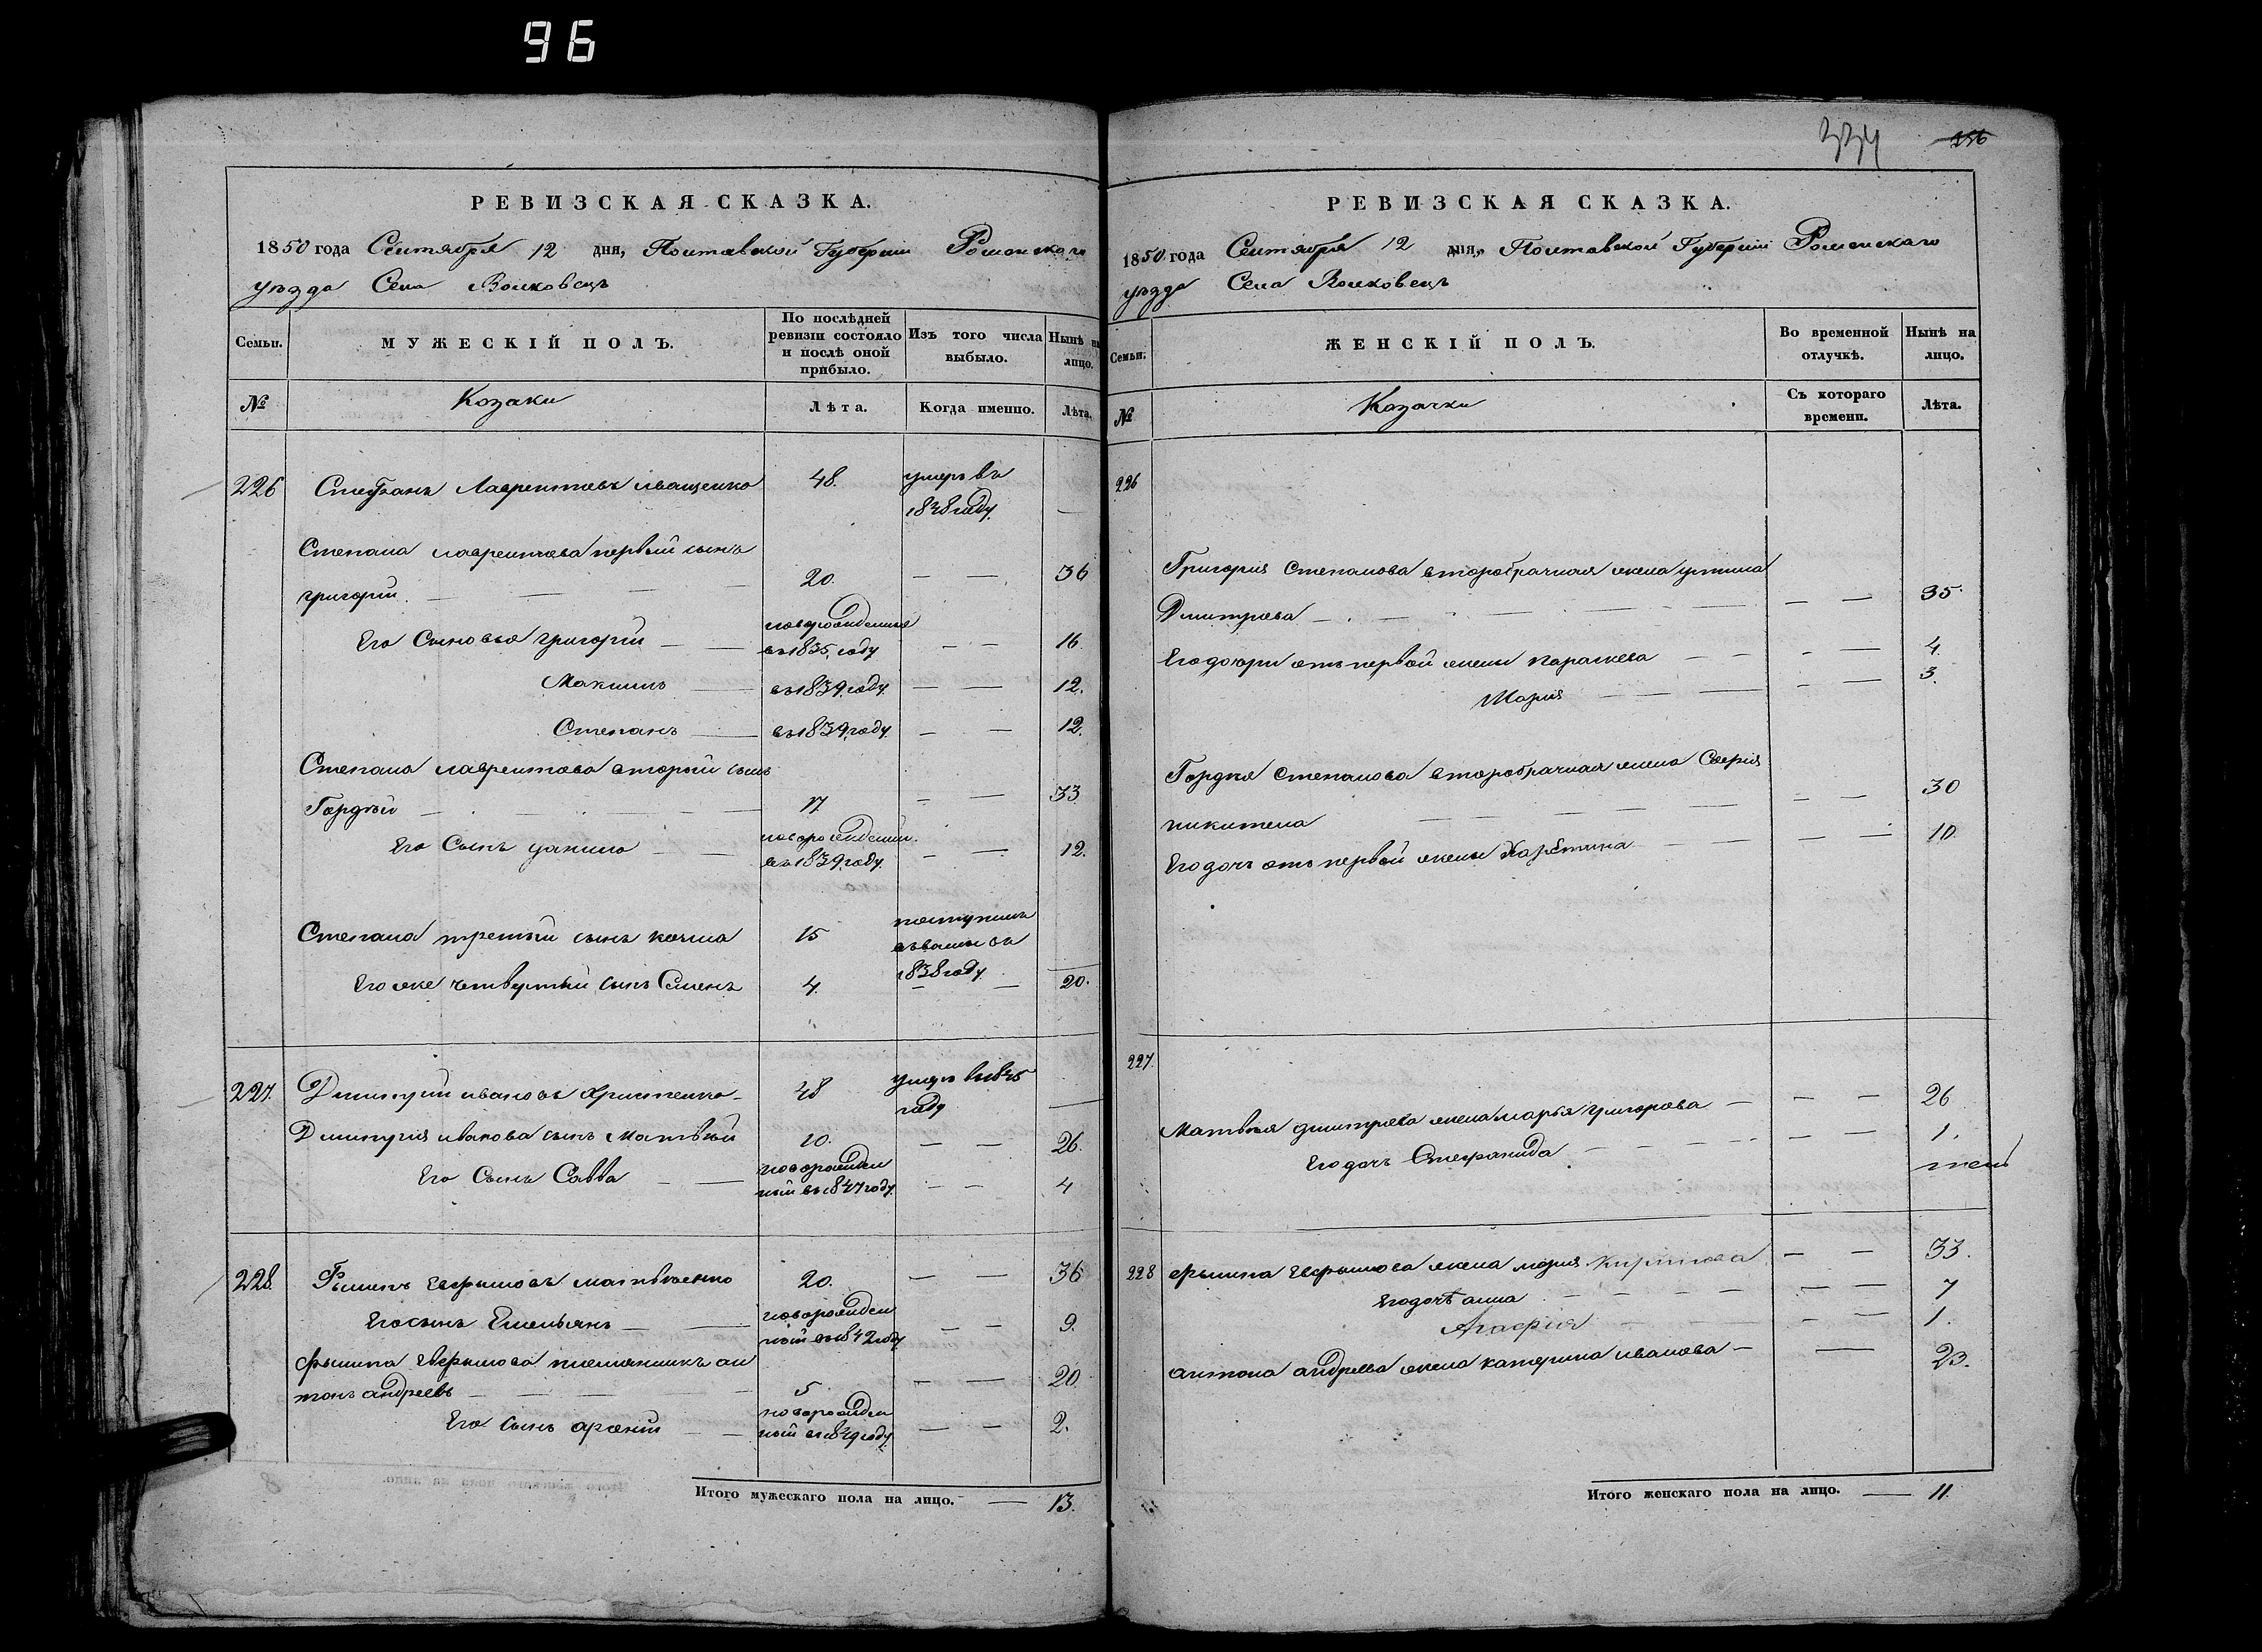 96
334
356
РЕВИЗСКАЯ СКАЗКА.
1850 года Сентября 12 дня, Полтавской Губернiи Роменскаго
уѣзда Села Волковецъ
Семьи.
МУЖЕСКІЙ ПОЛЪ.
По послѣдней
ревизіи состояло
и послѣ оной
прибыло.
Изъ того числа
выбыло.
Нынѣ на
лицо.
№
Козаки
Лѣта.
Когда именно.
Лѣта.
226 Стефанъ Лаврентіевъ иващенко 48. умеръ въ
1838 году. —
Степана лаврентіева первый сынъ
григорій — — — 20. — — 36
Его Сыновья григорій — — новорожденные
въ 1835 году — — 16.
Максимъ — въ 1839 году — — 12.
Степанъ — въ 1839 году — — 12.
Степана лаврентіева вторый сынъ
Гордѣй — — — 17 — — 33
Его Сынъ — — новорожденный
въ 1839 году — — 12.
Степана третій сынъ 15 поступилъ
1838 году —
Его же четвертый сынъ Семенъ 4. — — 20.
227. Дмитрій ивановъ Христенко — 48 умеръ въ 1845
году —
Дмитрія иванова сынъ Матвѣй 10. — — 26.
Его Сынъ Савва — — новорожден
ный въ 1847 году — — 4
228. Филипъ Ефимовъ матвѣенко 20. — — 36
Его сынъ Емельянъ — — новорожден
ный въ 1842 году — — 9.
филипа Ефимова племянникъ ан
тонъ андреевъ — — — 5 — — 20
Его сынъ — — новорожден
ный въ 1849 году — — 2.
Итого мужескаго пола на лицо. — 13.
РЕВИЗСКАЯ СКАЗКА.
1850 года Сентября 12 дня, Полтавской Губерніи Роменскаго
уѣзда Села Волковецъ
Семьи.
ЖЕНСКІЙ ПОЛЪ.
Во временной
отлучкѣ.
Нынѣ на
лицо.
№
Козачки
Съ котораго
времени.
Лѣта.
226
Григорія Степанова второбрачная жена устина
Дмитріева — — — — — 35.
Его дочери отъ первой жены параскева — — — — 4.
Марія — — — — 3.
Гордѣя Степанова второбрачная жена Софія
никитина — — — — — 30
Его дочь отъ первой жены — — — — 10.
227.
Матвѣя дмитріева жена марья григорова — — — 26
Его дочь Стефанида — — — — 1.
228 филипа Ефимова жена марія — — 33.
Его дочь анна — — — — — — 7
Агафия — — — — 1.
антона андреева жена катерина иванова — — 23.
Итого женскаго пола на лицо. — 11.